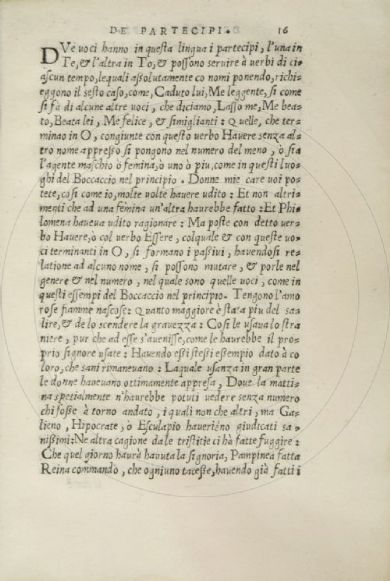 DE PARTECIPI. 16
DVe voci hanno in questa lingua i partecipi, l'una in
Te, & l'altra in To, & possono seruire à uerbi di cia
scun tempo, lequali assolutamente co nomi ponendo, richi-
eggono il sesto caso, come, Caduto lui, Me leggente, si come
si fà di alcune altre uoci, che diciamo, Lasso me, Me bea-
to, Beata lei, Me felice, & simiglianti: Quelle, che ter-
minao in O, congiunte con questo uerbo Hauere senza al-
tro nome appresso si pongono nel numero del meno, ò sia
l'agente maschio ò femina, ò uno ò piu, come in questi luo-
ghi del Boccaccio nel principio. Donne mie care uoi po-
tete, cosi come io, molte uolte hauere udito: Et non altri-
menti che ad una femina un'altra haurebbe fatto: Et Phi-
lomena haueua udito ragionare: Ma poste con detto uer-
bo Hauere, ò col uerbo Essere, colquale & con queste uo-
ci terminanti in O, si formano i passiui, hauendosi re-
latione ad alcuno nome, si possono mutare, & porle nel
genere & nel numero, nel quale sono quelle uoci, come in
questi essempi del Boccaccio nel principio. Tengono l'amo
rose fiamme nascose: Quanto maggiore è stata piu del sa-
lire, & de lo scendere la grauezza: Cosi le usaua lo stra
niere, pur che ad esse s'auenisse, come le haurebbe il pro-
prio signore usate: Hauendo essi stessi essempio dato à co
loro, che sani rimaneuano: Laquale usanza in gran parte
le donne haueuano ottimamente appresa, Doue la matti-
na spetialmente n'haurebbe potuti uedere senza numero
chi fosse à torno andato, i quali non che altri, ma Ga-
lieno, Hipocrate, ò Esculapio haurieno giudicati sa-
nissimi: Ne altra cagione dale tristitie ci hà fatte fuggire:
Che quel giorno haurà hauuta la signoria, Pampinea fatta
Reina commandò, che ogniuno tacesse, hauendo già fatti i